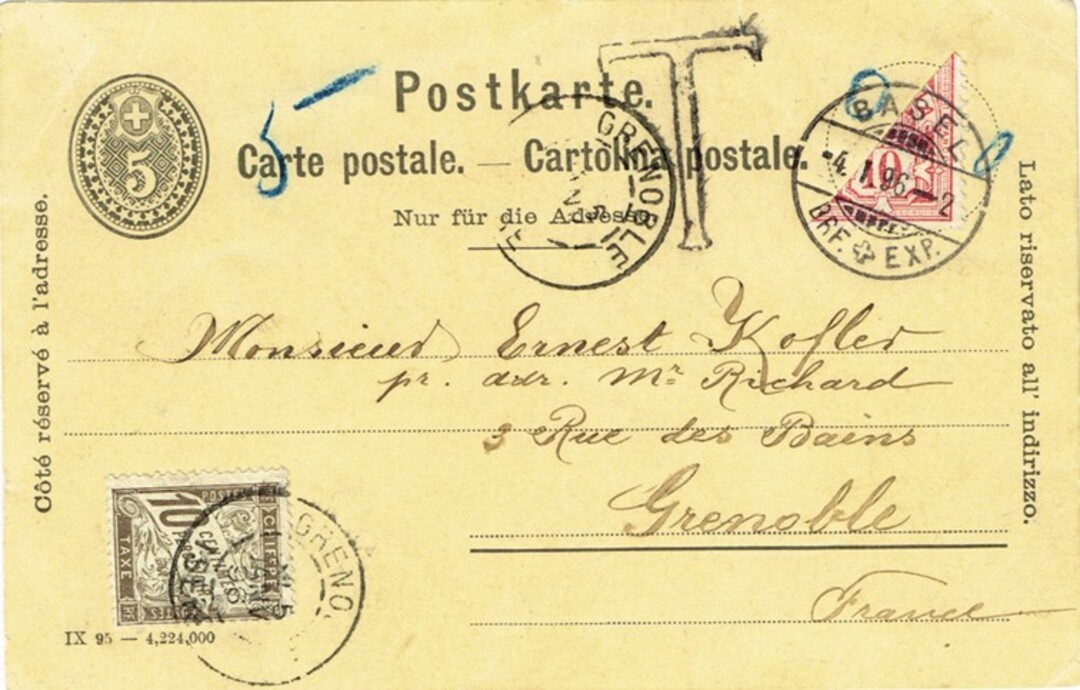 5
Postkarte.
5 Carte postale. — Cartolina postale.
Nur für die Adresse.
T
GRENOBLE
BASEL
10
-4.I.96-2
BRF. EXP.
Côté réservé à l'adresse.
Lato riservato all' indirizzo.
Monsieur Ernest Kofler
pr. adr. Mr Richard
3 Rue des Bains
Grenoble
France
10
CENTIMES
POSTES
A PERCEVOIR
TAXE
GRENO
IX 95 — 4,224,000